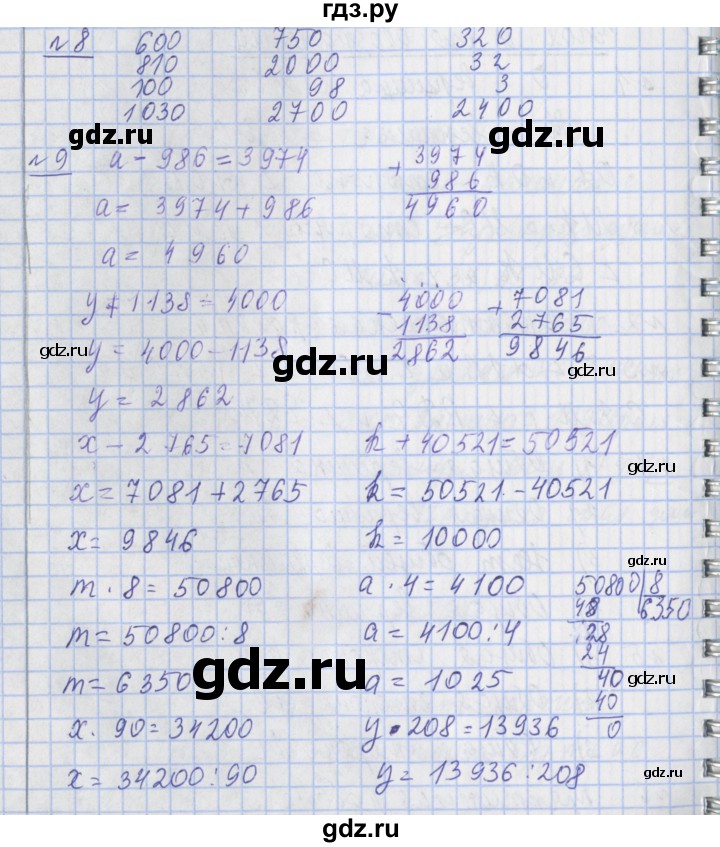 гдз.ру
№8 600 750 320
810 2000 32
100 98 3
1030 2700 2400
gdz.ru gdz.ru
№9 a - 986 = 3974
+ 3974
986
4960
a = 3974 + 986
a = 4960
y + 1138 = 4000
- 4000
1138
2862
+ 7081
2765
9846
gdz.ru
y = 4000 - 1138
gdz.ru
gdz.ru
y = 2862
x - 2765 = 7081 k + 40521 = 50521
gdz.ru
x = 7081 + 2765 k = 50521 - 40521
x = 9846 k = 10000
gdz.ru
m · 8 = 50800 a · 4 = 4100
50800 8
48 6350
28
24
40
40
0
m = 50800 : 8 a = 4100 : 4
gdz.ru
m = 6350 a = 1025
x · 90 = 34200 y · 208 = 13936
x = 34200 : 90 y = 13936 : 208
gdz.ru
gdz.ru
gdz.ru